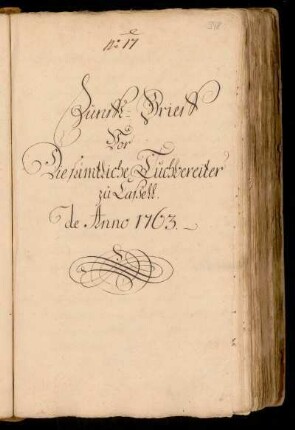 No 17
Zunfft-Brieff
Vor
Die sämtliche Tuchbereiter
zu Cassell.
de Anno 1763.